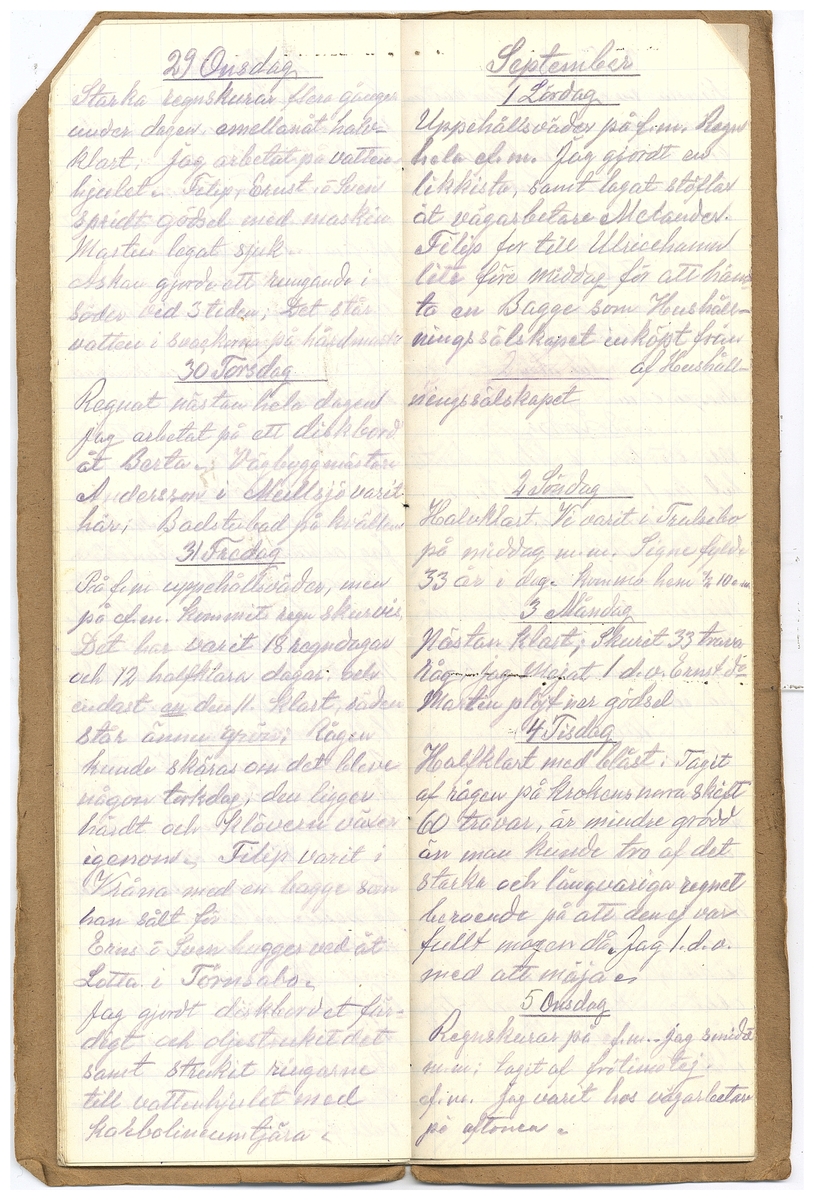 29 Onsdag
Starka regnskurar flera gånger
under dagen emellanåt halv-
klart, jag arbetat på vatten
hjulet. Filip, Ernst o Sven
spridt gödsel med maskin
Martin legat sjuk.
Åskan gjorde ett ringande i
söder ved 3 tiden; Det står
vatten i svackorna på hårdmark
30 Torsdag
Regnat nästan hela dagen
jag arbetat på ett diskbord
åt Berta. Vägbyggmästare
Andersson i Mullsjö varit
här; Badstubad på kvällen
31 Fredag
På f.m uppehållsväder, men
på e.m. kommit regn skurvis
Det har varit 18 regndagar
och 12 halfklara dagar och
endast en den 11. klart, säden
står ännu grön; Rågen
kunde skäras om det bleve
någon torkdag; den ligger
hårdt och klövern växer
igenom. Filip varit i
Vråna med en bagge som
han sålt för
Erns o Sven hugger ved åt
Lotta i Törnsabo.
Jag gjordt diskbordet fär-
digt och oljestrukit det
samt strukit ringarne
till vattenhjulet med
karbolineumtjära.
September
1 Lördag
Uppehållsväder på f.m. Regn
hela e.m. Jag gjordt en
likkista, samt lagat stöflar
åt vägarbetare Melander.
Filip for till Ulricehamn
lite före middag för att häm-
ta en Bagge som Hushåll-
ningssälskapet inköpt från
2 af Hushåll-
ningssälskapet
2 Söndag
Halvklart. Vi varit i Trulsibo
på middag m.m. Signe fylde
33 år i dag. Kommo hem ½ 10 e.m.
3 Måndag
Nästan klart; Skurit 33 travar
råg jag mejat 1 d.v. Ernst då
Martin plöjt ner gödsel
4 Tisdag
Halfklart med blåst; Tagit
af rågen på krokens norra skift
60 travar, är mindre grodd
än man kunde tro af det
starka och långvariga regnet
beroende på att den ej var
fullt mogen då. Jag 1. d.v.
med att mäja
5 Onsdag
Regnskurar på f.m. jag smidt
m.m; tagit af frötimotej
e.m. Jag varit hos vägarbetare
på aftonen.